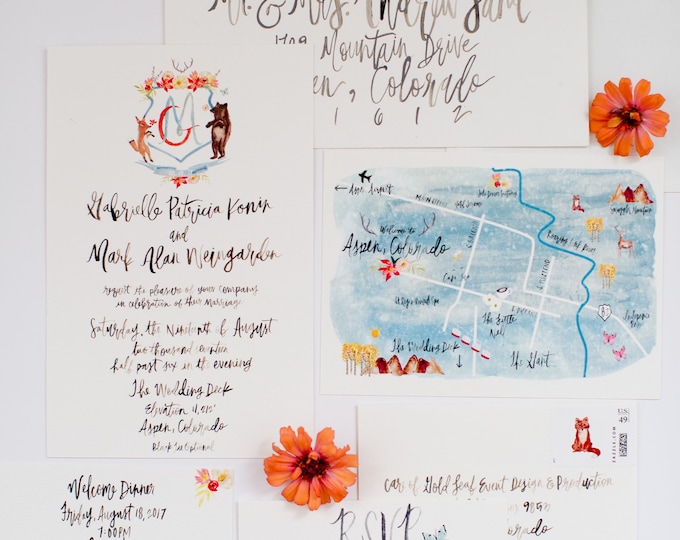 Mr. & Mrs. Andrew Sand
Mountain Drive
Colorado
1 6 1 2
G M
Gabrielle Patricia Konin
and
Mark Alan Weingarden
request the pleasure of your company
in celebration of their Marriage
Saturday, the Nineteenth of August
two thousand seventeen
half past six in the evening
The Wedding Deck
Elevation 11,212'
Aspen, Colorado
Black Tie Optional
Aspen Airport
Main St
Welcome to
Aspen, Colorado
Roaring Fork River
The Little
Nell
The Wedding Deck
The Gant
Independence
Pass
82
Welcome Dinner
Friday, August 18, 2017
7:00 PM
US
49
ZAZZLE.COM
Car of Gold Leaf Event Design & Production
RSVP